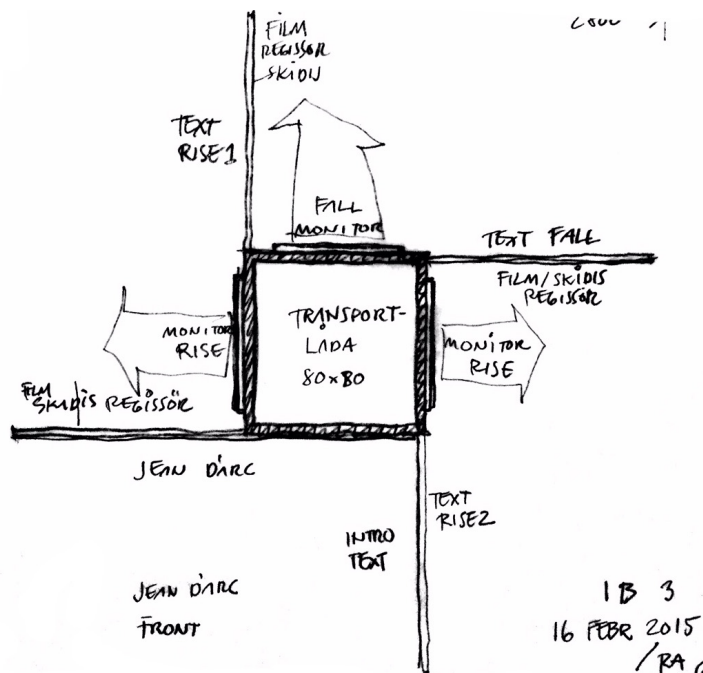 FILM
REGISSÖR
SKIDIS
TEXT
RISE 1
FALL
MONITOR
TEXT FALL
FILM/SKIDIS
REGISSÖR
MONITOR
RISE
TRANSPORT-
LÅDA
80x80
MONITOR
RISE
FILM
SKIDIS REGISSÖR
JEAN D'ARC
TEXT
RISE2
INTRO
TEXT
JEAN D'ARC
FRONT
1B 3
16 FEBR 2015
/RA